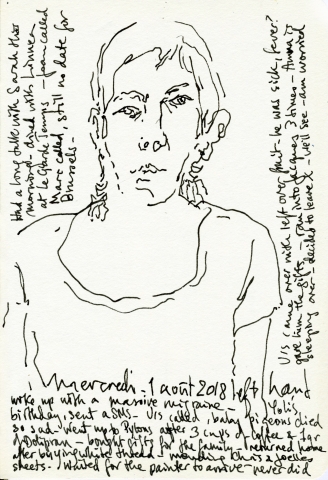 Had a long talk with Sarah this
morning - dined with
at le - Joan called
Marc called, still no date for
Brussels -
U/s came over with left over fruit - he was sick, fever?
gave him the gifts - ran into Jacques 3 times -
sleeping over - decided to leave - we'll see - am worried
Mercredi - 1 août 2018 left hand
woke up with a massive migraine -
birthday, sent a SMS - U/s called, baby pigeons died
so sad - went up to after 3 cups of coffee & 1gr
d'Doliprane - bought gifts for the family - returned home
after buying white thread -
sheets. I waited for the painter to arrive - never did